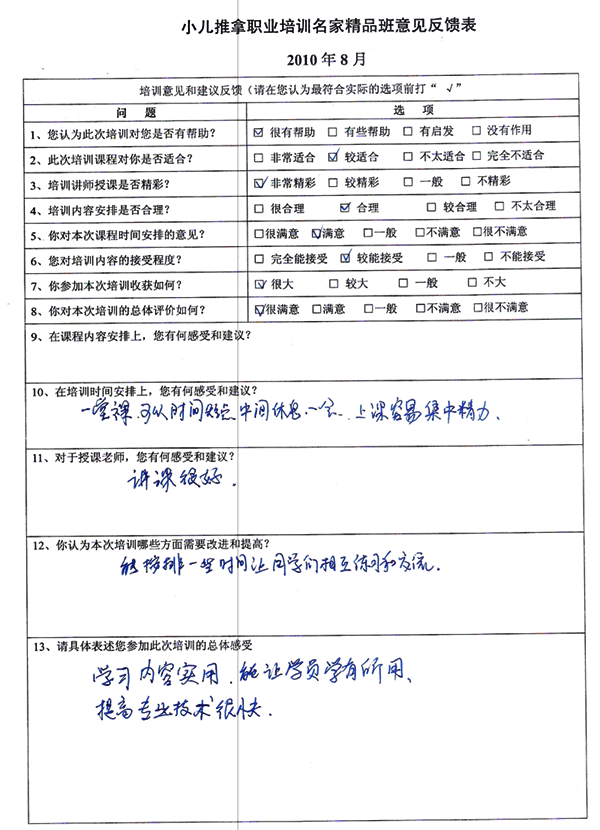 小儿推拿职业培训名家精品班意见反馈表
2010 年 8 月
培训意见和建议反馈（请在您认为最符合实际的选项前打“ √”
问 题 选 项
1、您认为此次培训对您是否有帮助？ ☑ 很有帮助 □ 有些帮助 □ 有启发 □ 没有作用
2、此次培训课程对你是否适合？ □ 非常适合 ☑ 较适合 □ 不太适合 □ 完全不适合
3、培训讲师授课是否精彩？ ☑ 非常精彩 □ 较精彩 □ 一般 □ 不精彩
4、培训内容安排是否合理？ □ 很合理 ☑ 合理 □ 较合理 □ 不太合理
5、你对本次课程时间安排的意见？ □很满意 ☑满意 □一般 □不满意 □很不满意
6、您对培训内容的接受程度？ □ 完全能接受 ☑ 较能接受 □ 一般 □ 不能接受
7、你参加本次培训收获如何？ ☑ 很大 □ 较大 □ 一般 □ 不大
8、你对本次培训的总体评价如何？ ☑很满意 □满意 □一般 □不满意 □很不满意
9、在课程内容安排上，您有何感受和建议？
10、在培训时间安排上，您有何感受和建议？
一堂课可以时间短点中间休息一会．上课容易集中精力．
11、对于授课老师，您有何感受和建议？
讲课很好．
12、你认为本次培训哪些方面需要改进和提高？
能按排一些时间让同学们相互练习和交流．
13、请具体表述您参加此次培训的总体感受
学习内容实用．能让学员学有所用、
提高专业技术很快．